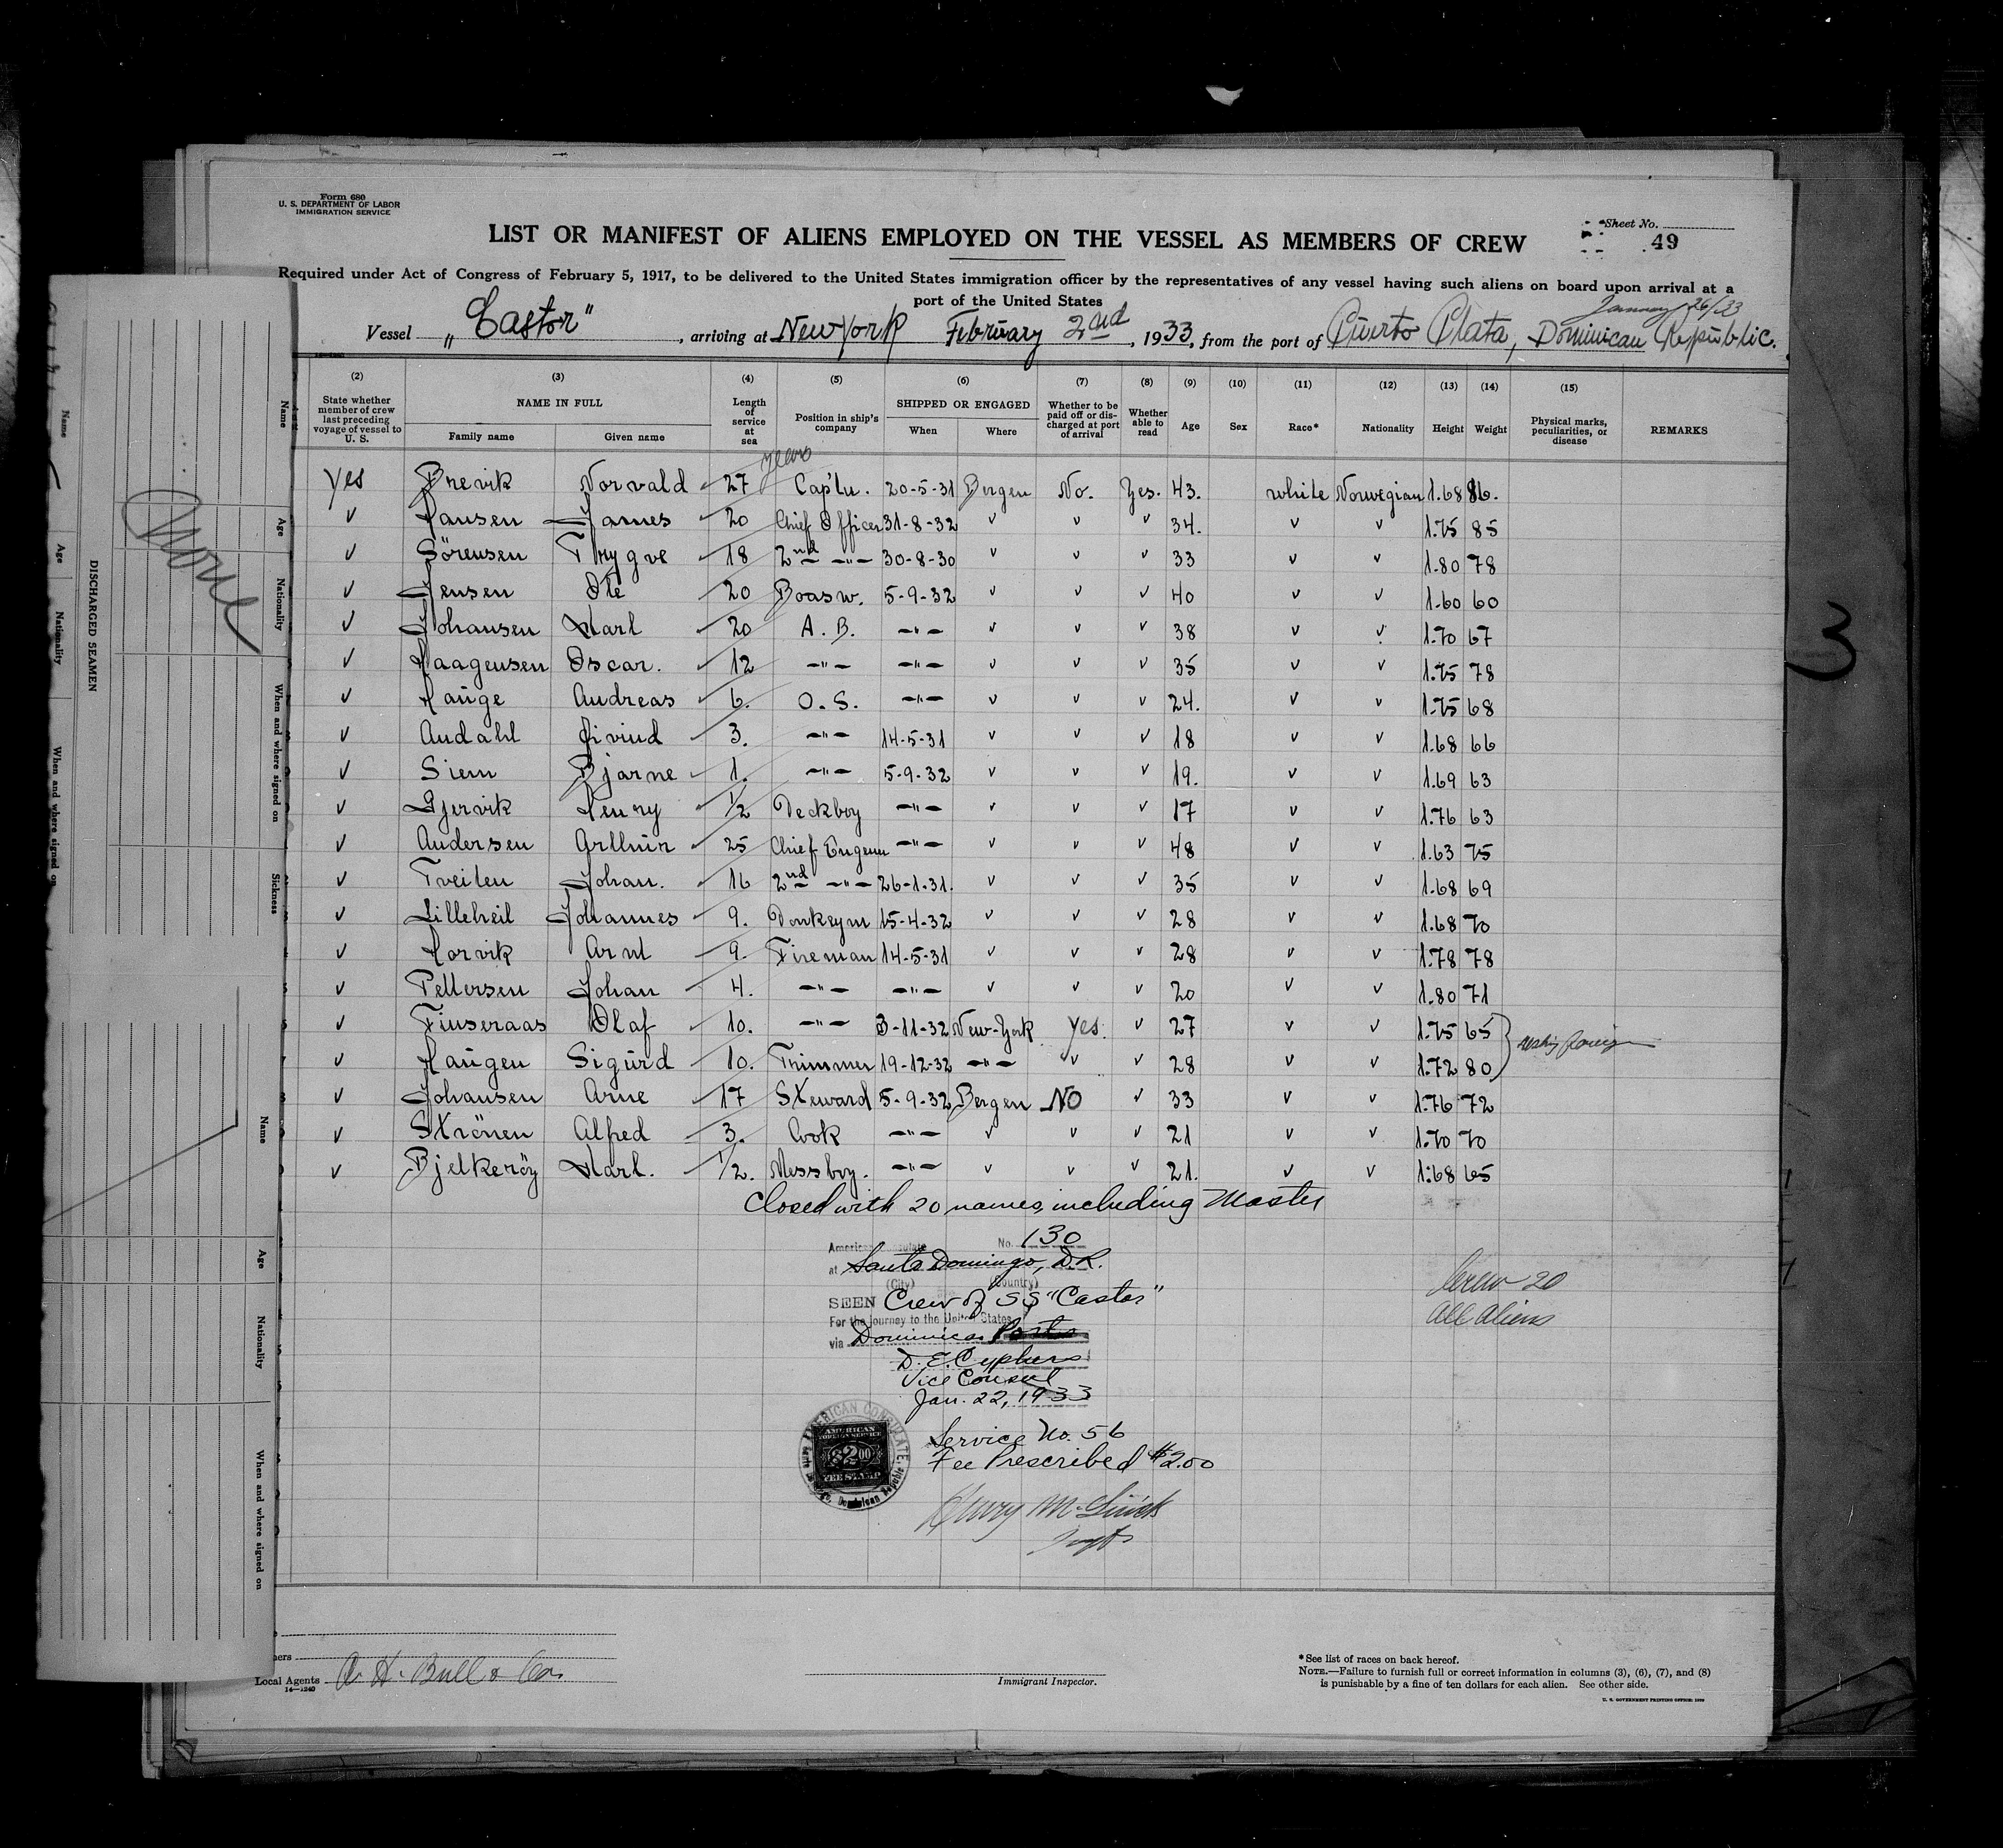 Form 680
U. S. DEPARTMENT OF LABOR
IMMIGRATION SERVICE
*Sheet No.
49
LIST OR MANIFEST OF ALIENS EMPLOYED ON THE VESSEL AS MEMBERS OF CREW
Required under Act of Congress of February 5, 1917, to be delivered to the United States immigration officer by the representatives of any vessel having such aliens on board upon arrival at a
port of the United States
January 26/33
Vessel „Castor", arriving at New York February 2nd, 1933, from the port of Puerto Plata, Dominican Republic.
(2) (3) (4) (5) (6) (7) (8) (9) (10) (11) (12) (13) (14) (15)
State whether member of crew last preceding voyage of vessel to U. S. NAME IN FULL Family name Given name Length of service at sea Position in ship's company SHIPPED OR ENGAGED When Where Whether to be paid off or discharged at port of arrival Whether able to read Age Sex Race* Nationality Height Weight Physical marks, peculiarities, or disease REMARKS
years
Yes Brevik Norvald 27 Captn. 20-5-31 Bergen No. Yes. 43. white Norwegian 1.68 86.
✓ Hansen James 20 Chief Officer 31-8-32 ✓ ✓ ✓ 34. ✓ ✓ 1.75 85
✓ Sörensen Thygve 18 2nd —"— 30-8-30 ✓ ✓ ✓ 33 ✓ ✓ 1.80 78
✓ Jensen Ole 20 Boasw. 5-9-32 ✓ ✓ ✓ 40 ✓ ✓ 1.60 60
✓ Johansen Karl 20 A. B. —"— ✓ ✓ ✓ 38 ✓ ✓ 1.70 67
✓ Haagensen Oscar. 12 —"— —"— ✓ ✓ ✓ 35 ✓ ✓ 1.75 78
✓ Hauge Andreas 6. O. S. —"— ✓ ✓ ✓ 24. ✓ ✓ 1.75 68
✓ Andahl Öivind 3. —"— 14-5-31 ✓ ✓ ✓ 18 ✓ ✓ 1.68 66
✓ Siem Bjarne 1. —"— 5-9-32 ✓ ✓ ✓ 19. ✓ ✓ 1.69 63
✓ Gjervik Henry 1/2 Deckboy —"— ✓ ✓ ✓ 17 ✓ ✓ 1.76 63
✓ Andersen Arthur 25 Chief Engenn —"— ✓ ✓ ✓ 48 ✓ ✓ 1.63 75
✓ Tveiten Johan. 16 2nd —"— 26-1-31. ✓ ✓ ✓ 35 ✓ ✓ 1.68 69
✓ Lilleheil Johannes 9. Donkeym 15-4-32 ✓ ✓ ✓ 28 ✓ ✓ 1.68 70
✓ Horvik Arnt 9. Fireman 14-5-31 ✓ ✓ ✓ 28 ✓ ✓ 1.78 78
✓ Pettersen Johan 4. —"— —"— ✓ ✓ ✓ 20 ✓ ✓ 1.80 71
✓ Finseraas Olaf 10. —"— 3-11-32 New-York yes. ✓ 27 ✓ ✓ 1.75 65
✓ Haugen Sigurd 10. Trimmer 19-12-32 —"— ✓ ✓ 28 ✓ ✓ 1.72 80
✓ Johansen Arne 17 Steward 5-9-32 Bergen No ✓ 33 ✓ ✓ 1.76 72
✓ Strönen Alfred 3. Cook —"— ✓ ✓ ✓ 21 ✓ ✓ 1.70 70
✓ Bjelkeröy Karl. 1/2. Messboy. —"— ✓ ✓ ✓ 21. ✓ ✓ 1.68 65
Closed with 20 names, including Master
American Consulate No. 130
at Santo Domingo, D.R.
(City) (Country)
SEEN Crew of SS "Castor"
For the journey to the United States
via Dominican Ports
D. E. Cyphers
Vice Consul
Jan. 22, 1933
Crew 20
All Aliens
AMERICAN CONSULATE
AMERICAN
FOREIGN SERVICE
$2.00
FEE STAMP
Dominican Republic
Service No. 56
Fee Prescribed $2.00
Local Agents A. H. Bull & Co.
14—1240
Immigrant Inspector.
*See list of races on back hereof.
NOTE.—Failure to furnish full or correct information in columns (3), (6), (7), and (8)
is punishable by a fine of ten dollars for each alien. See other side.
U. S. GOVERNMENT PRINTING OFFICE
3
DISCHARGED SEAMEN
Name Age Nationality When and where signed on Sickness
Name Age Nationality When and where signed on
None
Name Age Nationality When and where signed on